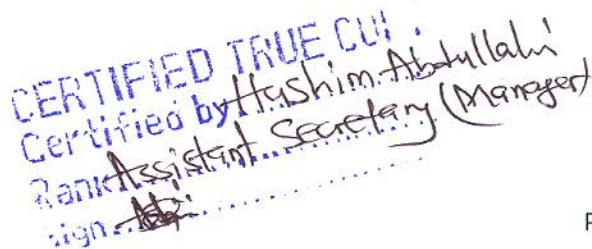 CERTIFIED TRUE CO
Certified by Hashim Abdullahi
Rank Assistant Secretary (Manager)
sign